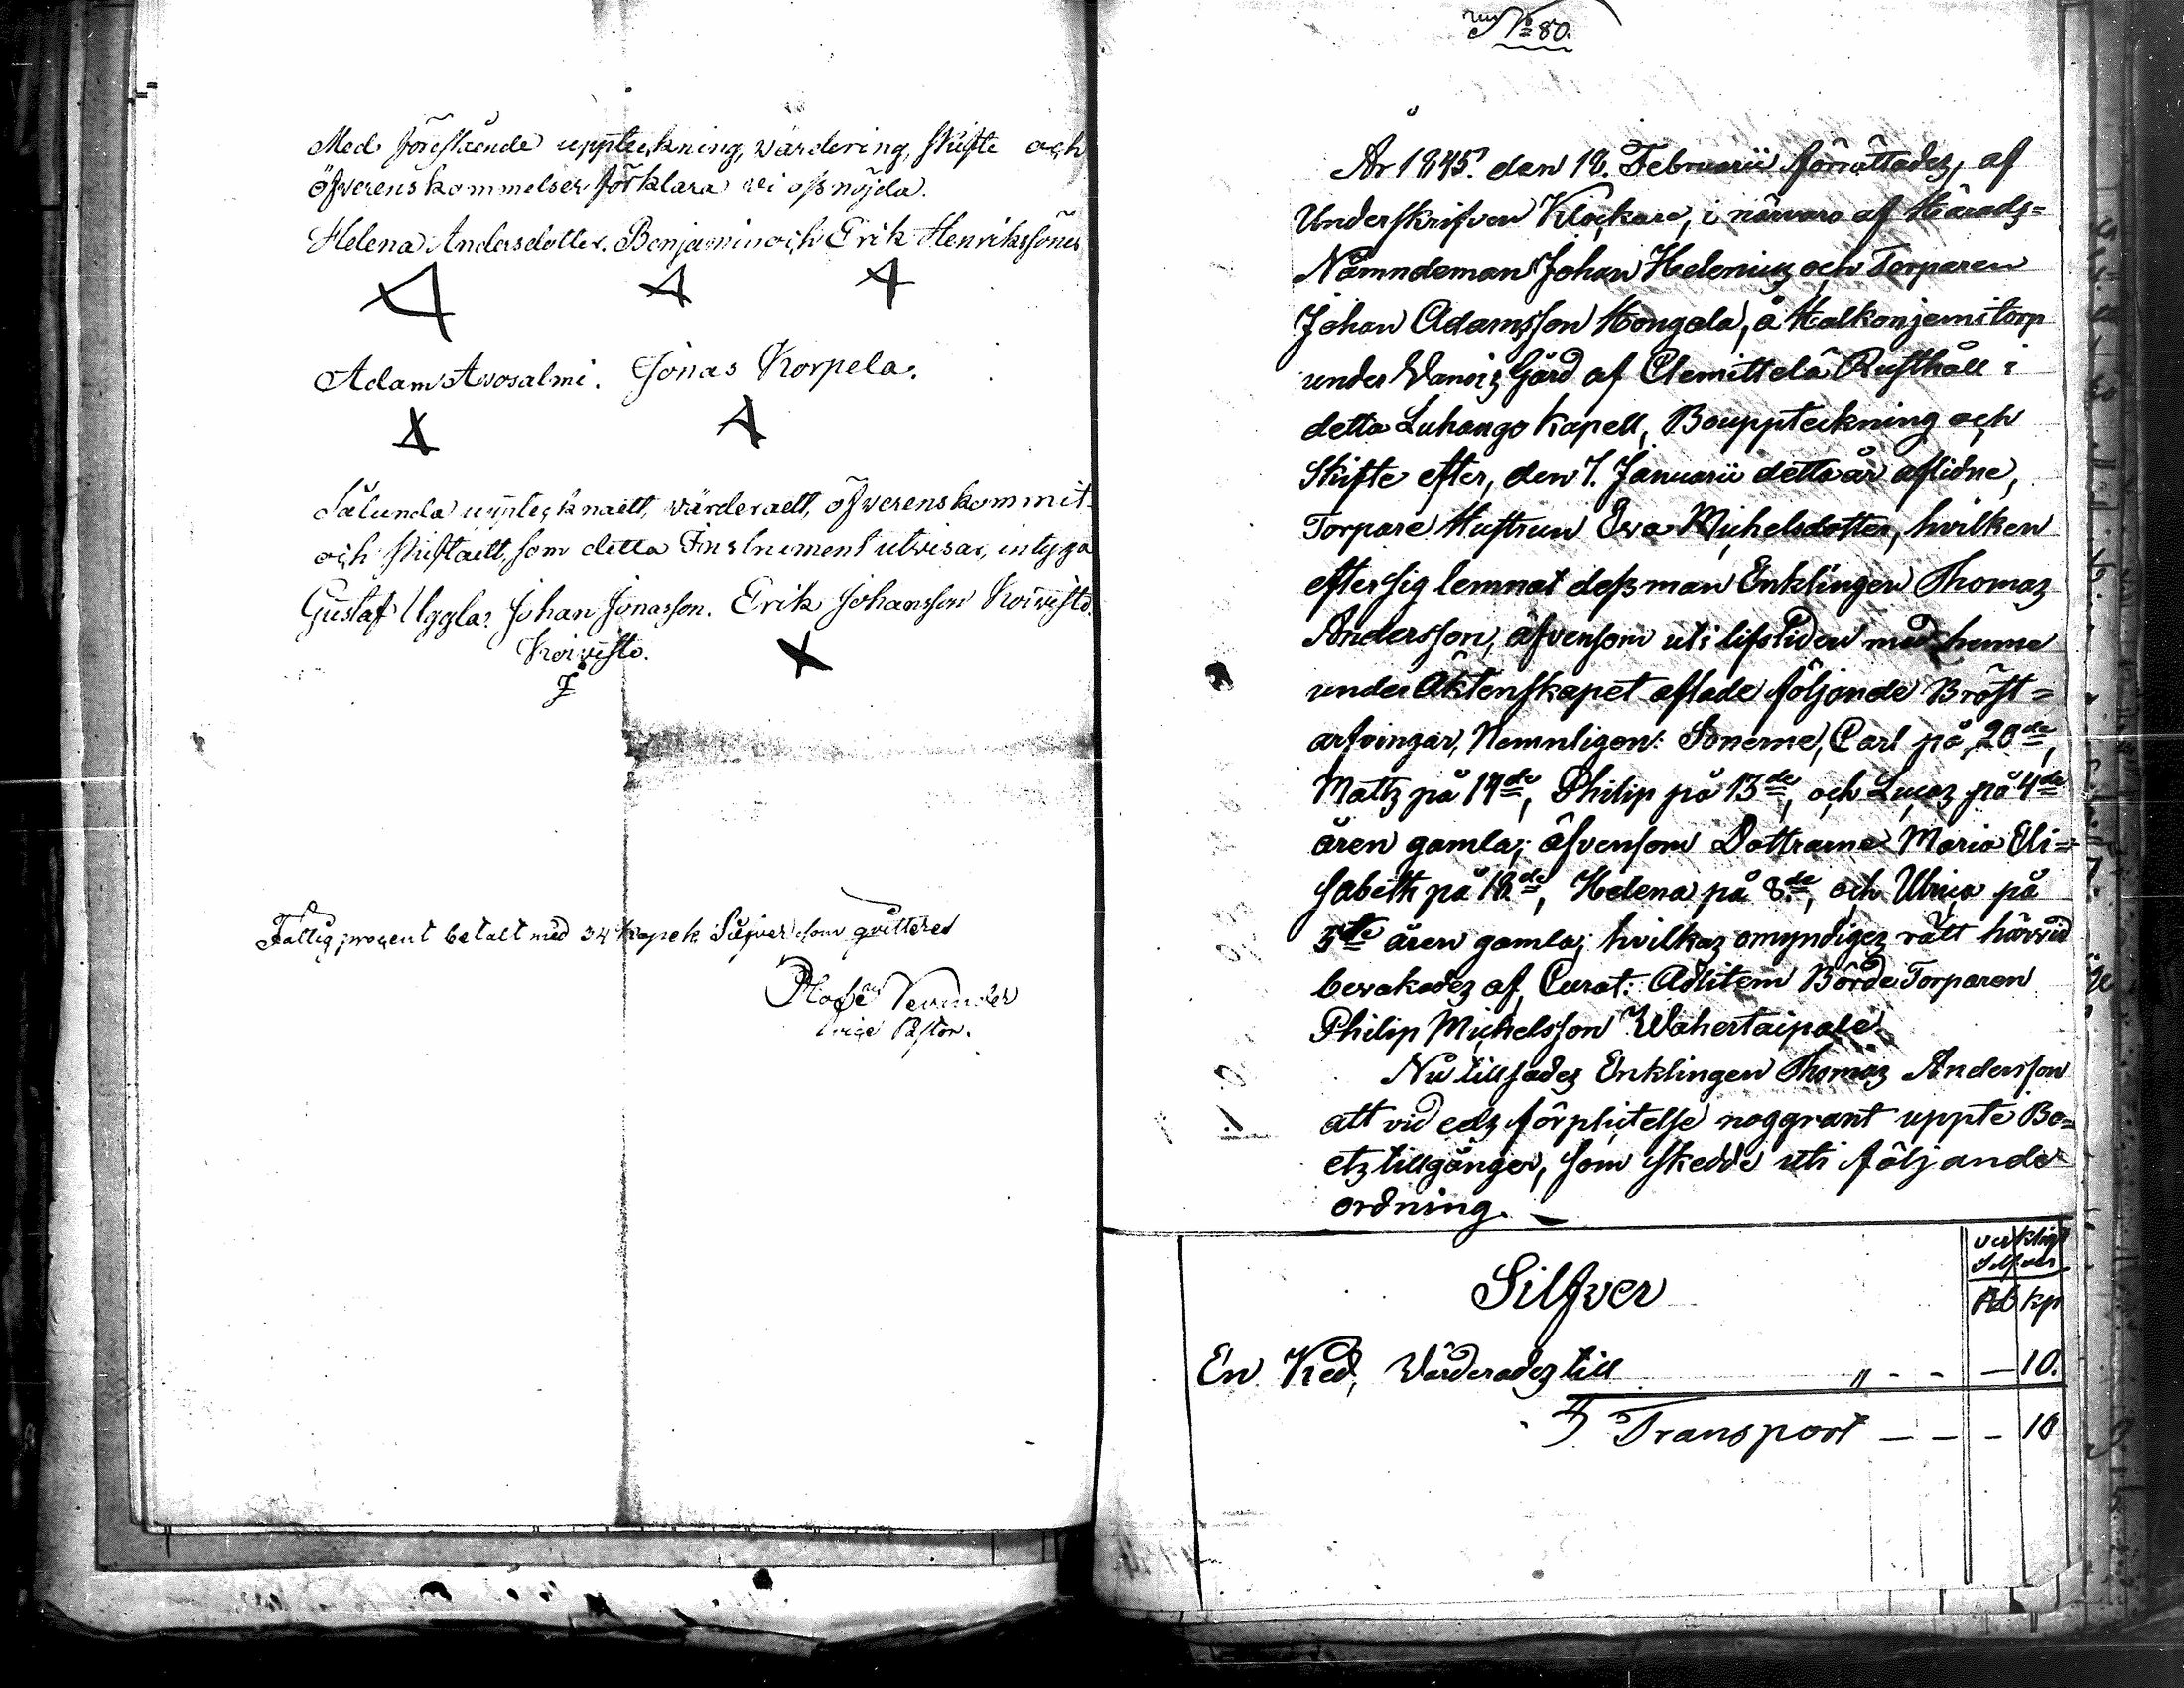 Med föreslående uppteckning, värdering, skifte och
öfverenskommelser förklara vi oss nöjda.
Helena Andersdotter. Benjamin och Erik Henrikssöner
Adam Avosalmi. Jonas Korpela.
Sålunda upptecknadt, värderadt, öfverenskommit
och skiftadt, som detta Instrument utvisar, intyga
Gustaf Uggla. Johan Jonasson. Erik Johansson Koivisto.
Koivisto.
Fattig procent betalt med 34 kopek Silfver som qvitteres
Vice Pastor.
No 80.
År 1845. den 18. Februarii förrättades, af
Underskrifven Klockare, i närvaro af Härads=
Nämndeman Johan Helenius och Torparen
Johan Adamsson Hongala, å Halkonjemi torp
under Wanois Gård af Clemittelä Rusthåll i
detta Luhango Kapell, Bouppteckning och
Skifte efter, den 7. Januarii detta år aflidne,
Torpare Hustrun Eva Michelsdotter, hvilken
efter sig lemnat dess man Enklingen Thomas
Andersson, äfvensom uti lifstiden med henne
under Äktenskapet aflade följande Bröst=
arfvingar, Nemnligen: Sönerne, Carl på 20de,
Matts på 14de, Philip på 13de, och Lucas på 4de
åren gamla; äfvensom Döttrarne Maria Eli=
sabeth på 18de, Helena på 8de, och Ulrica på
5te åren gamla; hvilkas omyndiges rätt härvid
bevakades af, Curat: Adlitem Börde Torparen
Philip Michelsson Wahertaipale.
Nu tillsades Enklingen Thomas Andersson
att vid eds förplictelse noggrant uppte Bo=
ets tillgånger, som skedde uti följande
ordning.
verkligt
Silfver
Silfver
Rub kp
En Ked, Värderades till " - - — 10.
Transport — — - 10